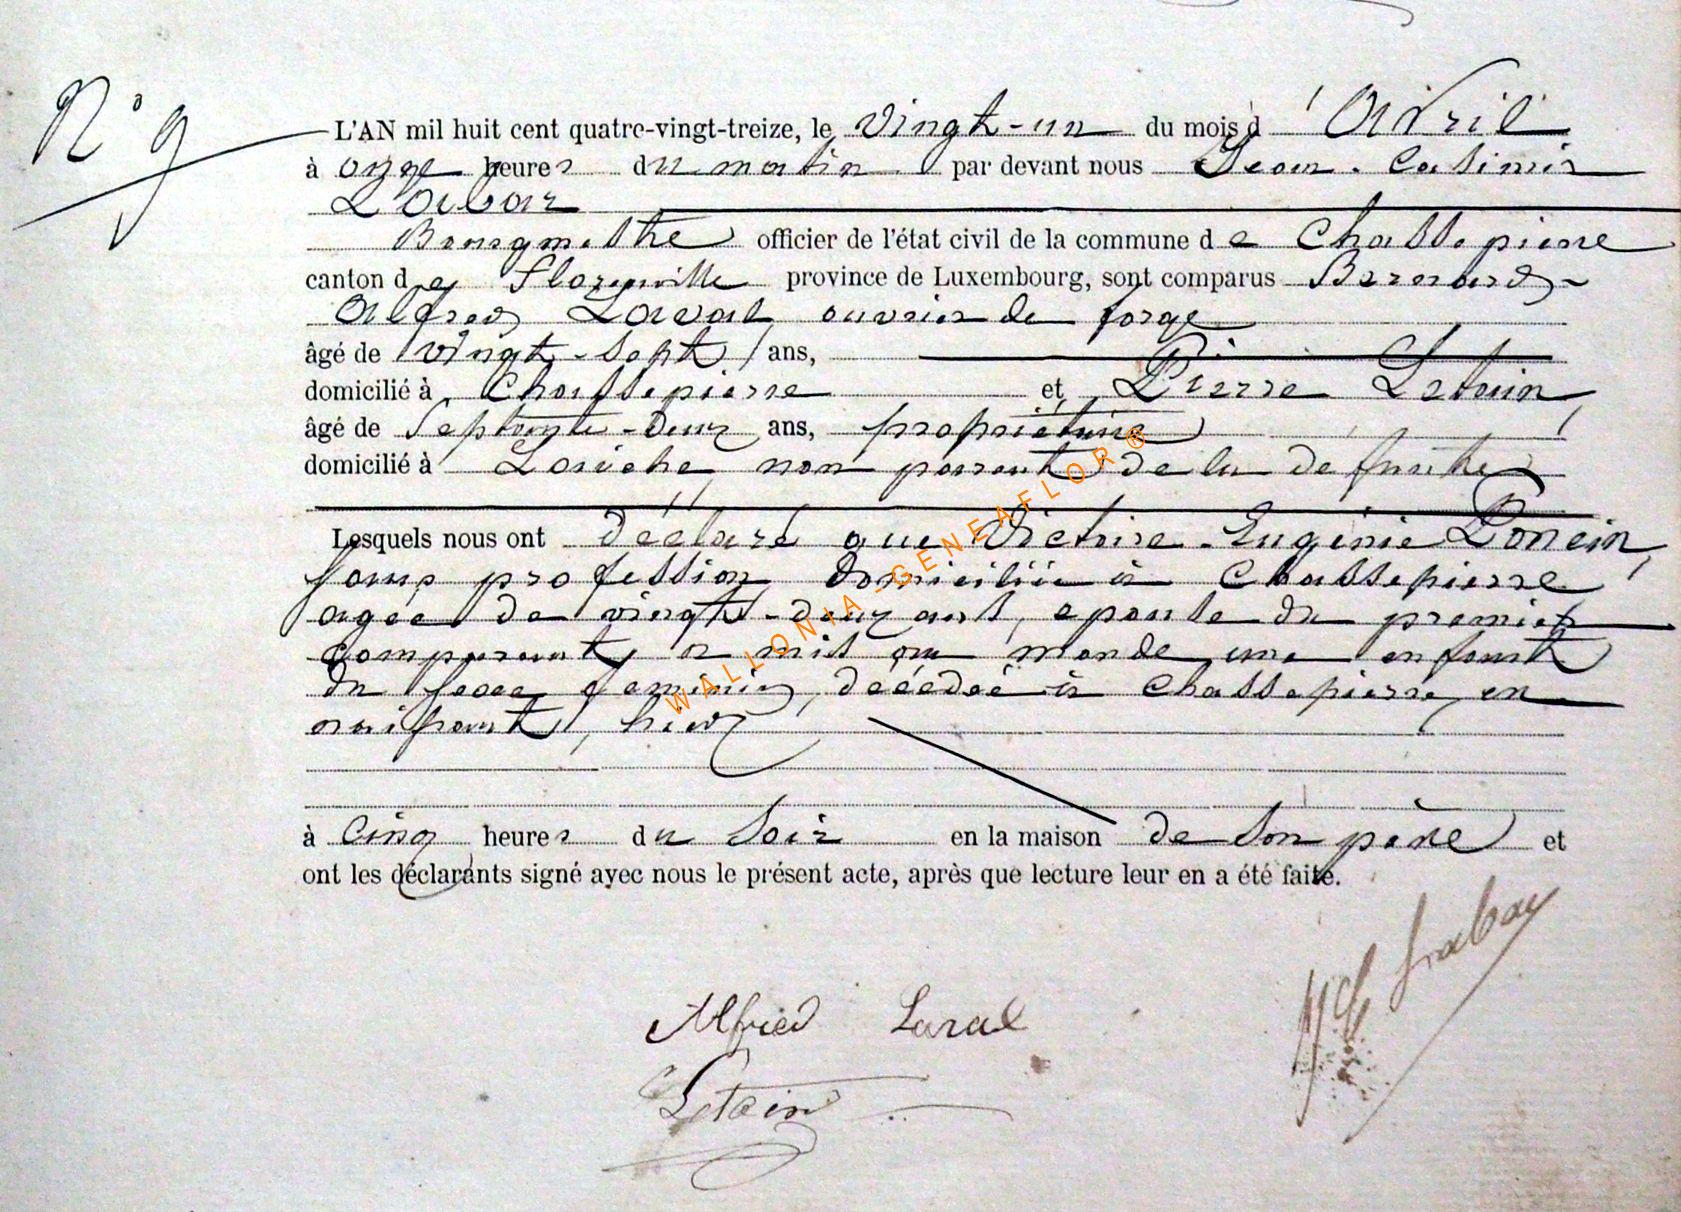 N° 9
L'AN mil huit cent quatre-vingt-treize, le vingt-un du mois d'Avril
à onze heures du matin par devant nous Jean-Casimir
Labar
Bourgmestre officier de l'état civil de la commune de Chassepierre
canton de Florenville province de Luxembourg, sont comparus Bernard-
Alfred Laval ouvrier de forge
âgé de vingt-sept ans,
domicilié à Chassepierre et Pierre Letoin
âgé de Septante-deux ans, propriétaire
domicilié à Laiche, non parent de la défunte
Lesquels nous ont déclaré que Victoire-Eugénie Poncin,
sans profession domiciliée à Chassepierre
agée de vingt-deux ans, epouse du premier
comparant, a mis au monde une enfant
du sexe feminin, décédeé à Chassepierre, en
naissant, hier
à cinq heures du soir en la maison de son père et
ont les déclarants signé avec nous le présent acte, après que lecture leur en a été faite.
Alfred Laval
Letoin
WALLONIA-GENEAFLOR®